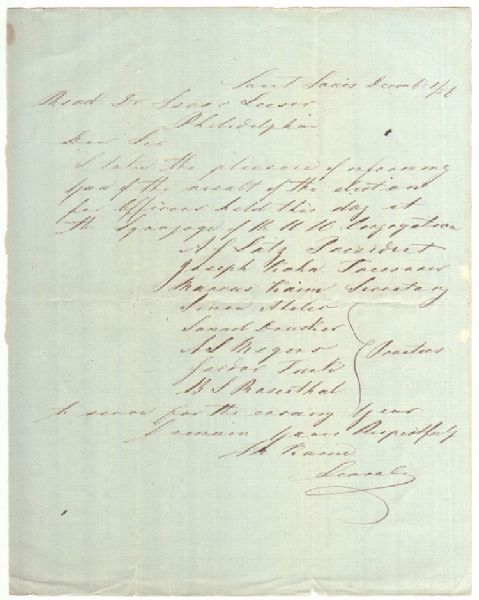 Saint Louis Decemb
Revd Dr Isaac Leeser
Philidelphia
Dear Sir
I take the pleasure of informing
you of the result of the election
for officers held this day at
the Synagoge of the U H Congregation
A J Latz President
Joseph Kohn Tresurer
Marcus Kaim Secretary
Simon Abeles
Samuel
A S Mogers
Isidor Tuska
B S Rosenthal
Trustees
to serve for the ensuing year
I remain yours Respectfully
M Kaim
Secretary